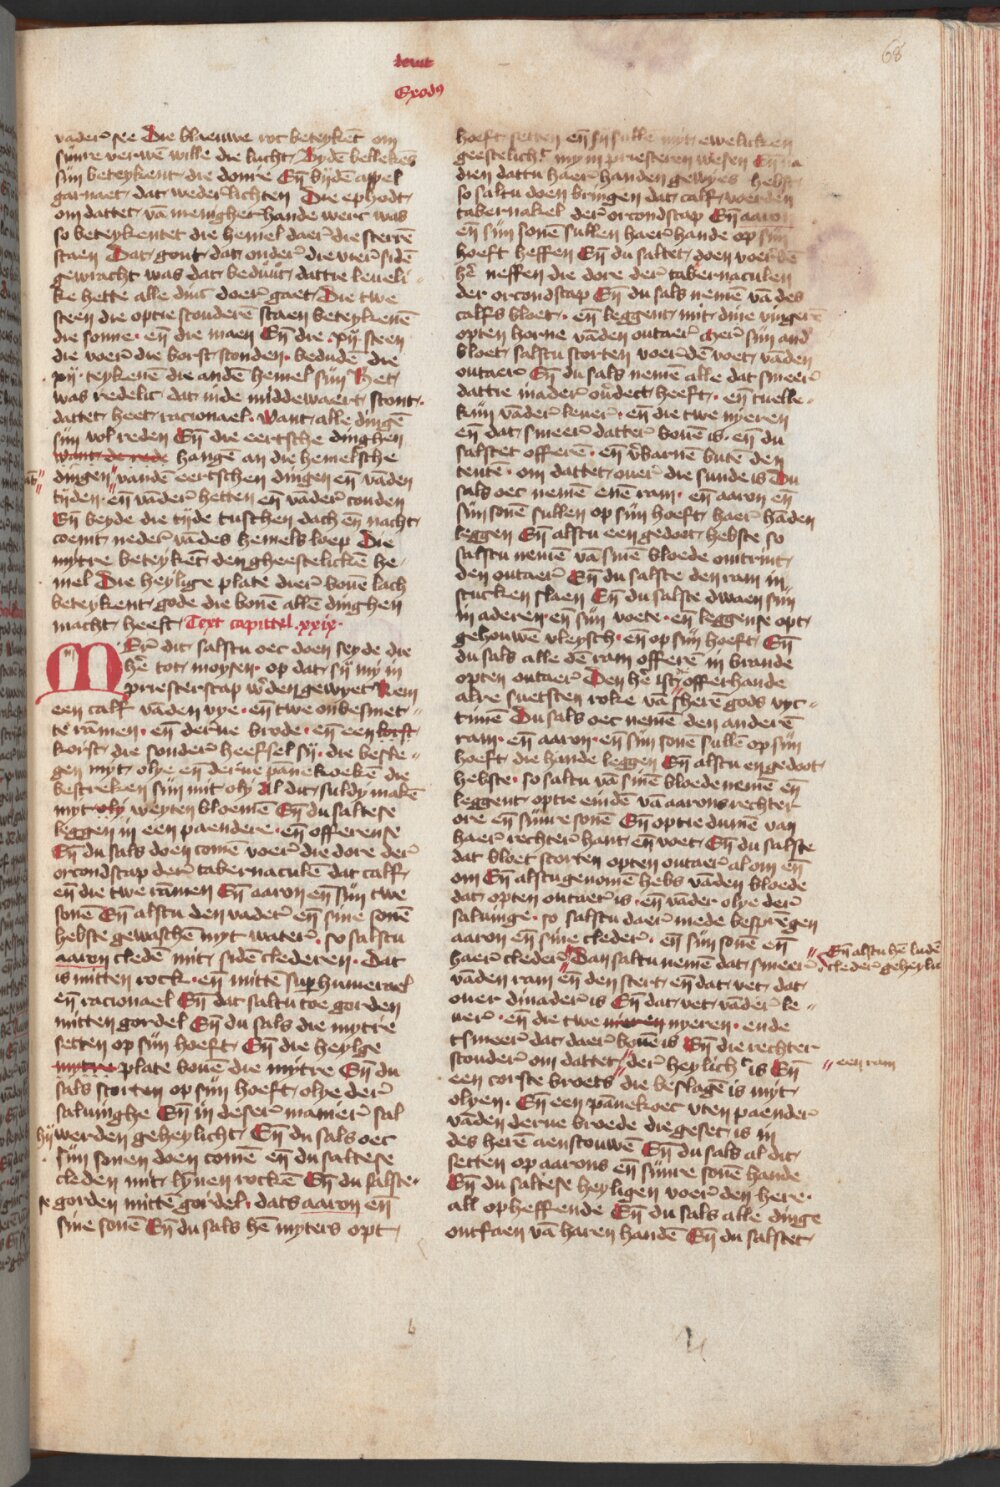 68
deut
Exodꝰ
vader see Die blaeuwe roc beteykēt om
sijnre verwē wille die lucht By dē bellekēs
sijn beteykent die donre Eñ bijdē appel
garnaet dat wederlichten Die ephodt
om dattet vā menigher hande werc was
so beteykentet die hemel daer die sterrē
staen Dat gout dat onder die vier sidē
gewracht was dat beduut dattie leueli
ke hette alle dinc doer gaet Die twe
steen die optie scouderē staen beteykenē
die sonne eñ die maen Eñ die xij steen
die voer die borst stonden bedudē die
xij teykenē die andē hemel sijn Het
was redelic dat inde middewaert stont
dattet heet racionael want alle dingē
sijn vol reden Eñ die eertsche dinghen
want de rede hangē an die hemelsche
dingen vanden eertschen dingen eñ vādē
tijden eñ vāder hetten eñ vāder couden
Eñ beyde die tijde tusschen dach eñ nacht
coemt neder vādes hemels loep Die
mytre beteykēt den gheestelickē he
mel Die heylige plate dier bouē lach
beteykent gode die bouē allē dinghen
macht heeft Text capittel xxix
Mer dit salstu oec doen seyde die
hē tot moysen op dat sij mij in
priesterscap wdē gewyet Nem
een calf vāden vye eñ twe onbesmet
te rāmen eñ derue brode eñ een korst
korst die sonder heefsel sij die beste
gen myt olye eñ derue pānekoekē die
bestreken sijn mit oly Al dit suldy makē
myt oly weyten bloemē Eñ du saltese
leggen in een paendere eñ offerense
Eñ du sals doen comē voer die dore der
orcondscap der tabernaculē dat calf
eñ die twe rāmen Eñ aaron eñ sijn twe
sonē Eñ alstu den vader eñ sine sonē
hebste gewasschē myt water so salstu
aaron cledē mit sidē clederen Dat
is mitten rock eñ mittē suphumerael
eñ racionael Eñ dat saltu toe gorden
mitten gordel Eñ du sals die mytre
setten op sijn hoeft Eñ die heylge
mytre plate bouē die mitre Eñ du
sals storten op sijn hoeft olye der
saluinghe Eñ in deser manier sal
hij werden geheylicht Eñ du sals oec
sijn sonen doen comē eñ du saltese
cleden mit lynen rocken Eñ du salste
se gorden mittē gordel dats aaron eñ
sine sonē Eñ du sals hē myters opt
hoeft setten eñ sij sulle myt ewelicken
geestelich my in priesteren wesen Eñ na
dien dattu haer handen gewyes hebste
so saltu doen bringen dat calf voer den
tabernakel der orcondscap Eñ aaron
eñ sijn sonē sullen haer hande op sijn
hoeft heffen Eñ du saltet doen voer dē
hē neffen die dore der tabernaculen
der orcondscap Eñ du sals nemē vā des
calfs bloet eñ leggent mit dine vinger
opten horne vāden outaer Mer sijn and
bloet salstu storten voer dē voet vāden
outaer Eñ du sals nemē alle dat smeer
dattie inader oudect heeft eñ tuelle
kijn vāder leuer eñ die twe nyeren
eñ dat smeer datter bouē is eñ du
salstet offerē eñ vbarnē butē den
tentē om dattet ouer die sunde is Du
sals oec nemē enē ram eñ aaron eñ
sijn sonē sullen op sijn hoeft haer hāden
leggen Eñ alstu een gedoot hebste so
salstu nemē vā sinē bloede omtrint
den outaer Eñ du salste den ram in
stucken slaen Eñ du salste dwaen sijn
in aderen eñ sijn voete eñ leggense opt
gehouwē vleysch eñ op sijn hoeft Eñ
du sals alle dē ram offerē in brande
opten outaer Den hē ist offerhande
alre suetsten roke vā sherē gods vic
timē Du sals oec nemē den anderē
ram eñ aaron eñ sijn sonē sullē op sijn
hoeft die hande leggen Eñ alstu en gedoot
hebste so saltu vā sinē bloede nemē eñ
leggent optie eindē vā aarons rechter
ore eñ sijnre sonē Eñ optie dumē van
haer rechter hant eñ voet Eñ du salste
dat bloet storten opten outaer al om eñ
om Eñ alstu genomē hebs vāden bloede
dat opten outaer is eñ vāder olye der
saluinge so salstu daer mede besprēgen
aaron eñ sine cleder eñ sijn sonē eñ
haer cleder Dan saltu nemē dat smeer
Eñ alstu hē ludē
vāden ram eñ den stert eñ dat vet dat
ouer dinader is Eñ dat vet vāder le
uer eñ die twe nieren nyeren ende
tsmeer dat daer bouē is Eñ die rechter
scouder om dattet der heylich is Eñ
een ram
een corste broets die beslagē is myt
olyen Eñ een pānekoec vten paender
vāden derue broede die geset is in
des herē aenscouwē Eñ du sals al dit
setten op aarons eñ sijnre sonē hande
Eñ du saltese heyligen voer den here
all opheffende Eñ du sals alle dinge
ontfaen vā haren handē Eñ du salstet